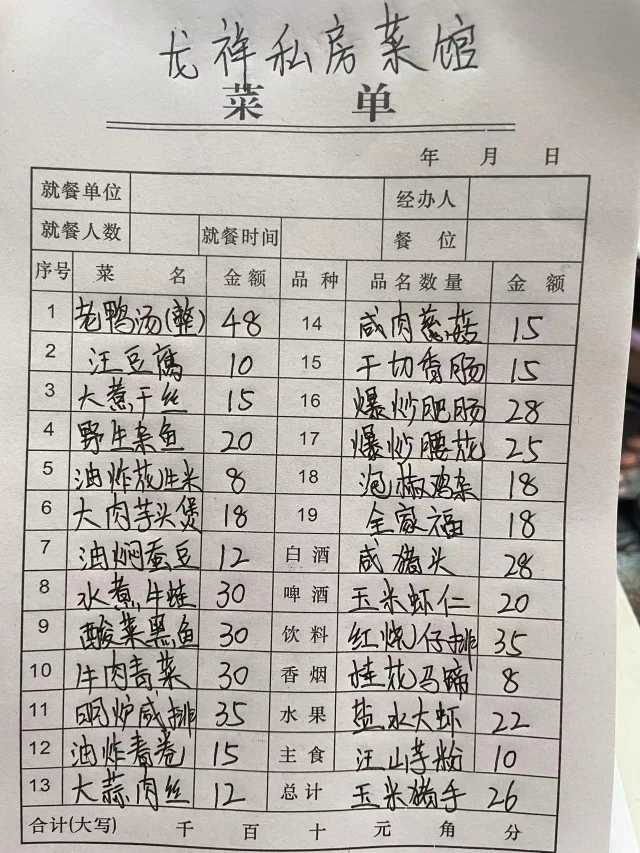 龙祥私房菜馆
菜 单
年 月 日
就餐单位 经办人
就餐人数 就餐时间 餐 位
序号 菜 名 金额 品 种 品名数量 金 额
1 老鸭汤(整) 48 14 咸肉蘑菇 15
2 汪豆腐 10 15 干切香肠 15
3 大煮干丝 15 16 爆炒肥肠 28
4 野生杂鱼 20 17 爆炒腰花 25
5 油炸花生米 8 18 泡椒鸡杂 18
6 大肉芋头煲 18 19 全家福 18
7 油焖蚕豆 12 白酒 咸猪头 28
8 水煮牛蛙 30 啤酒 玉米虾仁 20
9 酸菜黑鱼 30 饮料 红烧仔排 35
10 牛肉青菜 30 香烟 桂花马蹄 8
11 明炉咸排 35 水果 盐水大虾 22
12 油炸春卷 15 主食 汪山芋粉 10
13 大蒜肉丝 12 总计 玉米猪手 26
合计(大写) 千 百 十 元 角 分